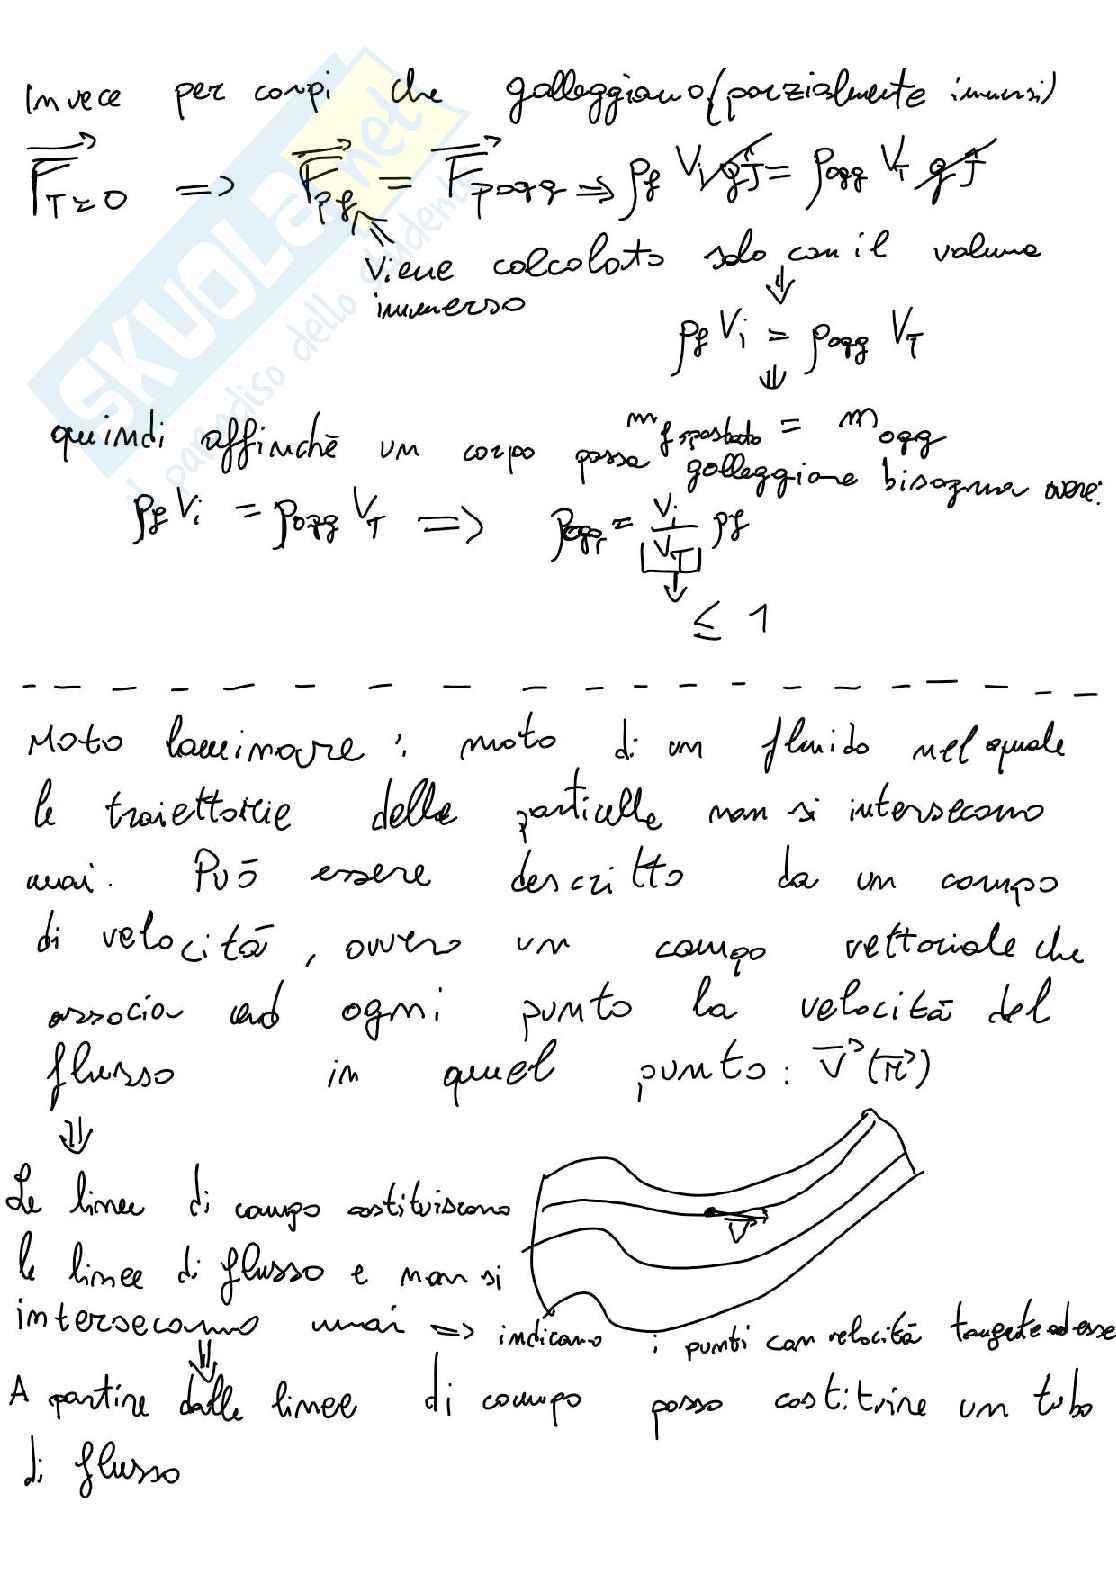 Invece per corpi che galleggiano (parzialmente immersi)
F_T = 0 => F_pf = F_pogg => ρf Vi g j = ρogg VT g j
Viene calcolato solo con il volume
immerso
ρf Vi = ρogg VT
m f spostato = m ogg
quindi affinchē un corpo possa galleggiare bisogna avere:
ρf Vi = ρogg VT => ρogg = Vi/VT ρf
≤ 1
Moto laminare : moto di un fluido nel quale
le traiettorie delle particelle non si intersecano
mai. Puō essere descritto da un campo
di velocitā, ovvero un campo vettoriale che
associa ad ogni punto la velocitā del
flusso in quel punto: V(r)
Le linee di campo costituiscono
le linee di flusso e non si
intersecano mai => indicano i punti con velocitā tangente ad esse
V
A partire dalle linee di campo posso costituire un tubo
di flusso
SKUOLA.net
il paradiso dello studente